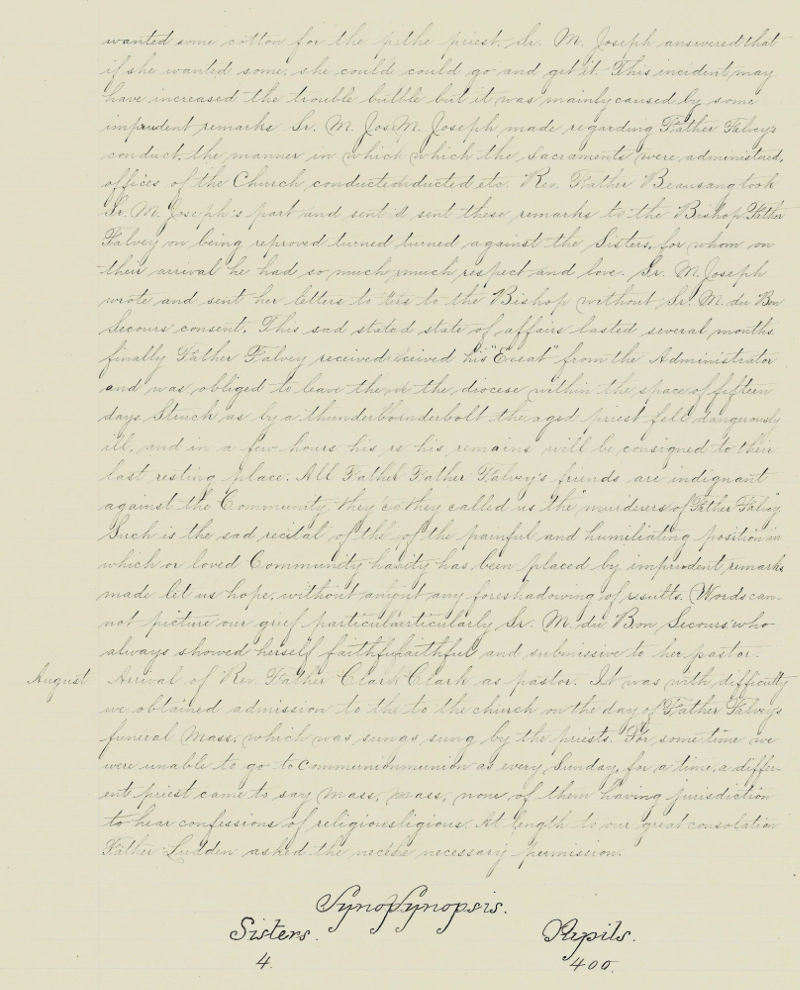 wanted some cotton for the p the priest. Sr. M. Joseph answered that
if she wanted some, she could could go and get it. This incident may
have increased the trouble but the but it was mainly caused by some
imprudent remarks Sr. M. Jos M. Joseph made regarding Father Falvey's
conduct, the manner in which which the Sacraments were administered,
offices of the Church, conducted ducted etc. Rev. Father Beausang took
Sr. M. Joseph's part and sent d sent these remarks to the Bishop. Father
Falvey on being reproved turned turned against the Sisters, for whom on
their arrival he had so much much respect and love. Sr. M. Joseph
wrote and sent her letters to to the Bishop without Sr. M. du Bon
Secours consent. This sad stated state of affairs lasted several months
finally Father Falvey received received his "Exeat" from the Administrator
and was obliged to leave the the diocese within the space of fifteen
days. Struck as by a thunderbo nderbolt the aged priest fell dangerously
ill, and in a few hours his re his remains will be consigned to their
last resting place. All Father Father Falvey's friends are indignant
against the Community, they ca they called us "the murderers of Father Falvey."
Such is the sad recital of the of the painful and humiliating position in
which or loved Community has ity has been placed by imprudent remarks
made let us hope, without any out any foreshadowing of results. Words can-
not picture our grief particular ticularly Sr. M. du Bon Secours who
always showed herself faithful faithful and submissive to her pastor.
August Arrival of Rev. Father Clark Clark as pastor. It was with difficulty
we obtained admission to the to the church on the day of Father Falvey's
funeral Mass, which was sung s sung by the priests. For some time we
were unable to go to communion munion as every Sunday, for a time, a differ-
ent priest came to say mass, mass, none of them having jurisdiction
to hear confessions of religious ligious. At length to our great consolation
Father Ludden asked the neces necessary permission.
Synop Synopsis.
Sisters. Pupils.
4. 400.